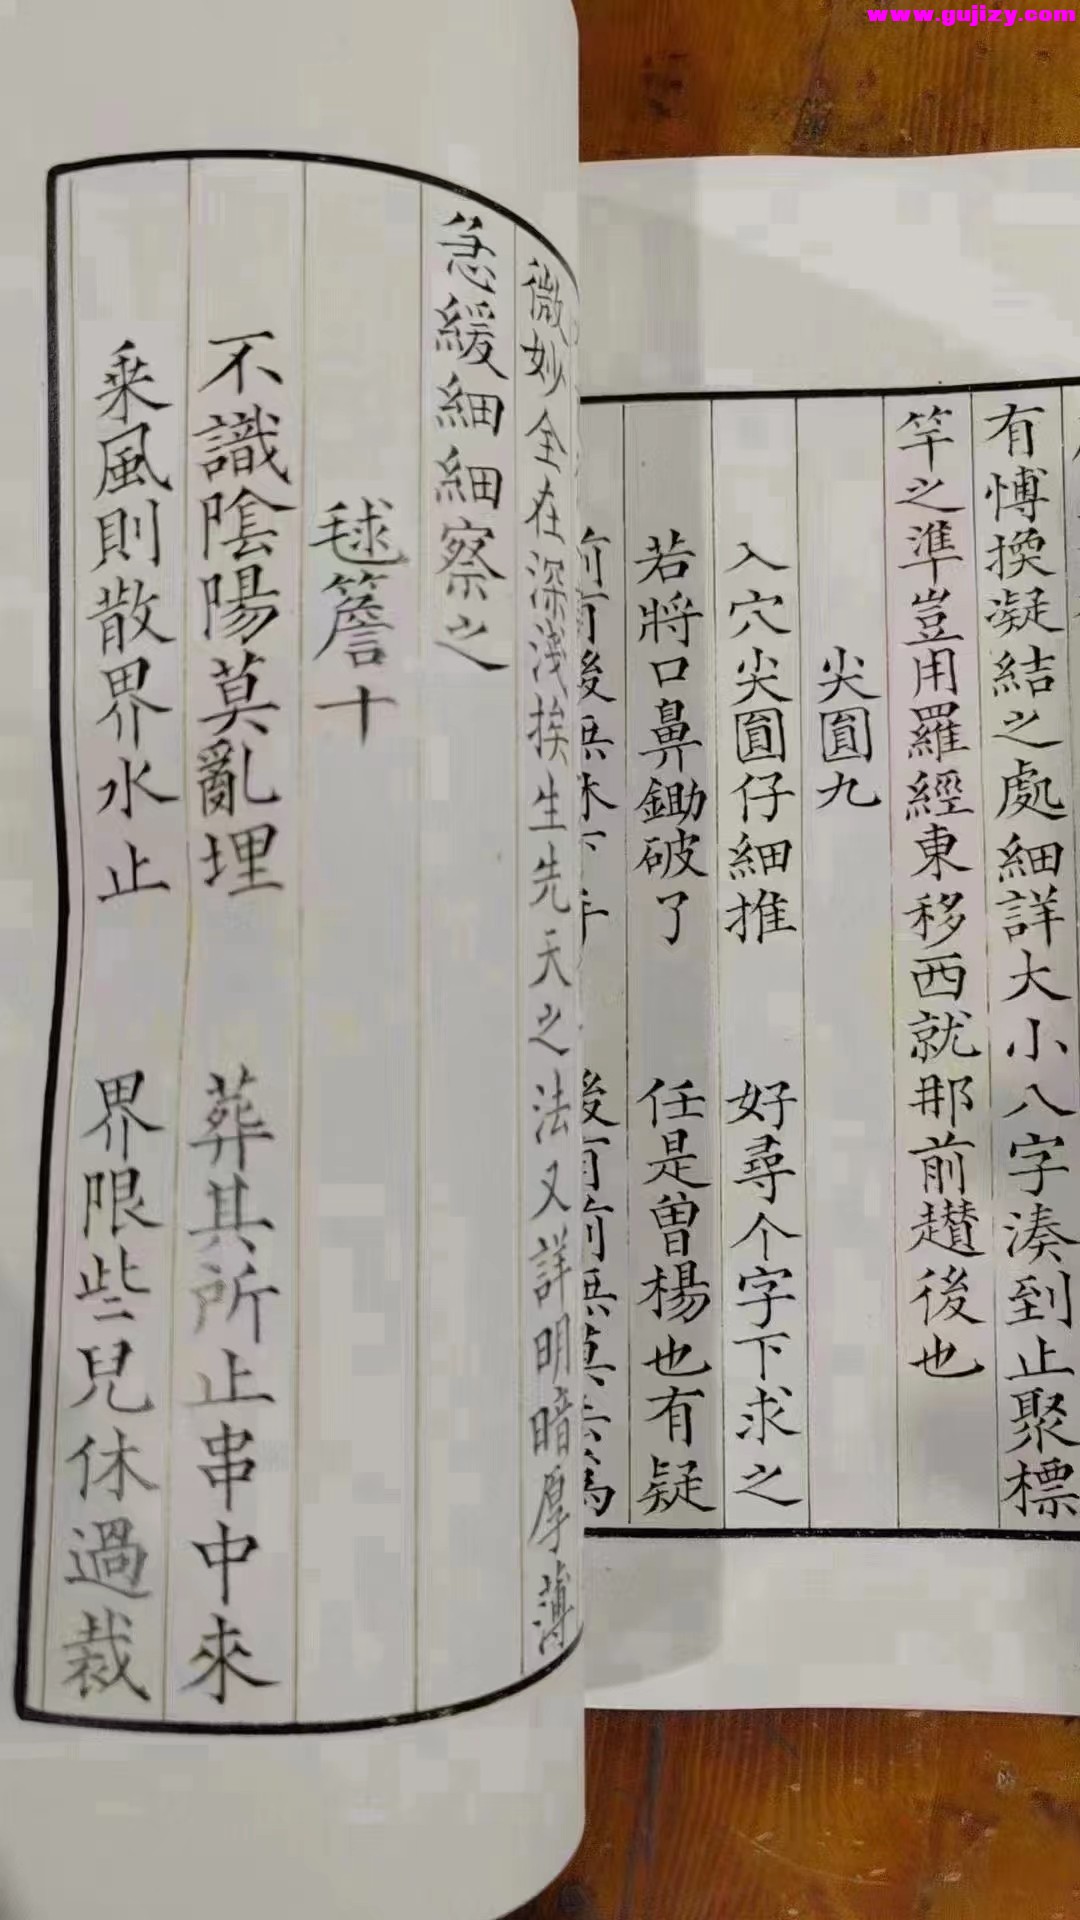 www.gujizy.com
有愽換凝結之處細詳大小八字湊到止聚標
竿之準豈用羅經東移西就那前趲後也
尖圓九
入穴尖圓仔細推 好尋个字下求之
若將口鼻鋤破了 任是曾楊也有疑
微妙全在深淺挨生先天之法又詳明暗厚薄
急緩細細察之
毬簷十
不識陰陽莫亂埋 葬其所止串中來
乘風則散界水止 界限些兒休過裁